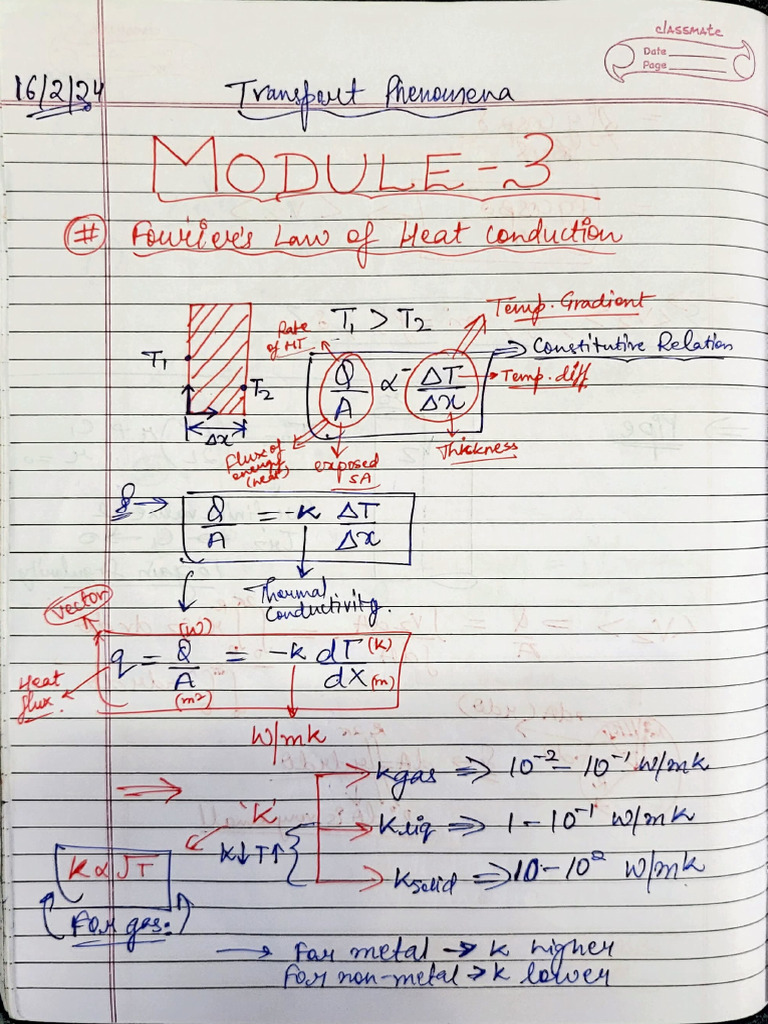 classmate
Date
Page
16/2/24
Transport Phenomena
MODULE-3
# Fourier's Law of Heat Conduction
T₁ > T₂
Temp. Gradient
Rate of HT
Constitutive Relation
T₁
T₂
Q/A ∝ - ΔT/Δx
Temp. diff
Δx
Flux of energy (heat)
exposed SA
Thickness
Q/A = -k ΔT/Δx
Thermal Conductivity.
Vector
q = Q/A = -k dT/dX
(W)
(K)
(m²)
(m)
Heat flux.
W/mk
kgas ⇒ 10⁻² - 10⁻¹ W/mk
'K'
Kliq ⇒ 1 - 10⁻¹ W/mk
K↓T↑
K∝√T
Ksolid ⇒ 10 - 10² W/mk
For gas:
→ For metal → k higher
For non-metal → k lower